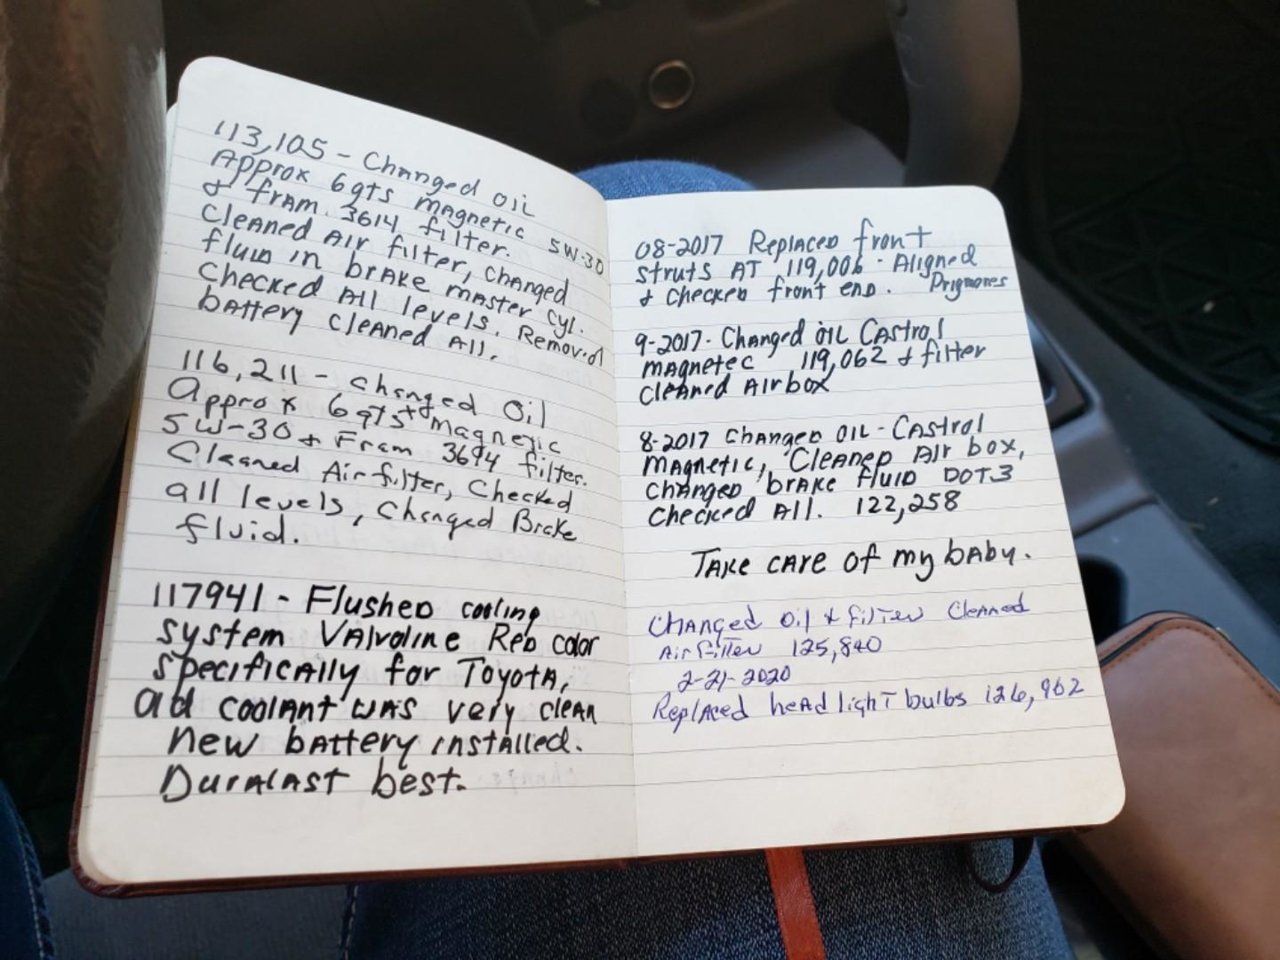 113,105 - Changed oil
Approx 6qts magnetic 5W-30
& fram 3614 filter.
Cleaned Air filter, changed
fluid in brake master cyl.
Checked All levels. Removed
battery cleaned All.
116,211 - changed Oil
Approx 6qts + magnetic
5W-30 & Fram 3614 filter.
Cleaned Air filter, Checked
all levels, Changed Brake
fluid.
117941 - Flushed cooling
system Valvoline Red color
specifically for Toyota,
ad coolant was very clean
new battery installed.
Duralast best.
08-2017 Replaced front
struts AT 119,006. Aligned
& checked front end. Prigmores
9-2017. Changed oil Castrol
magnetec 119,062 & filter
cleaned Airbox
8-2017 changed oil - Castrol
magnetic, Cleaned Air box,
changed brake fluid DOT3
checked All. 122,258
Take care of my baby.
Changed oil & filter Cleaned
Air filter 125,840
2-21-2020
Replaced head light bulbs 126,962